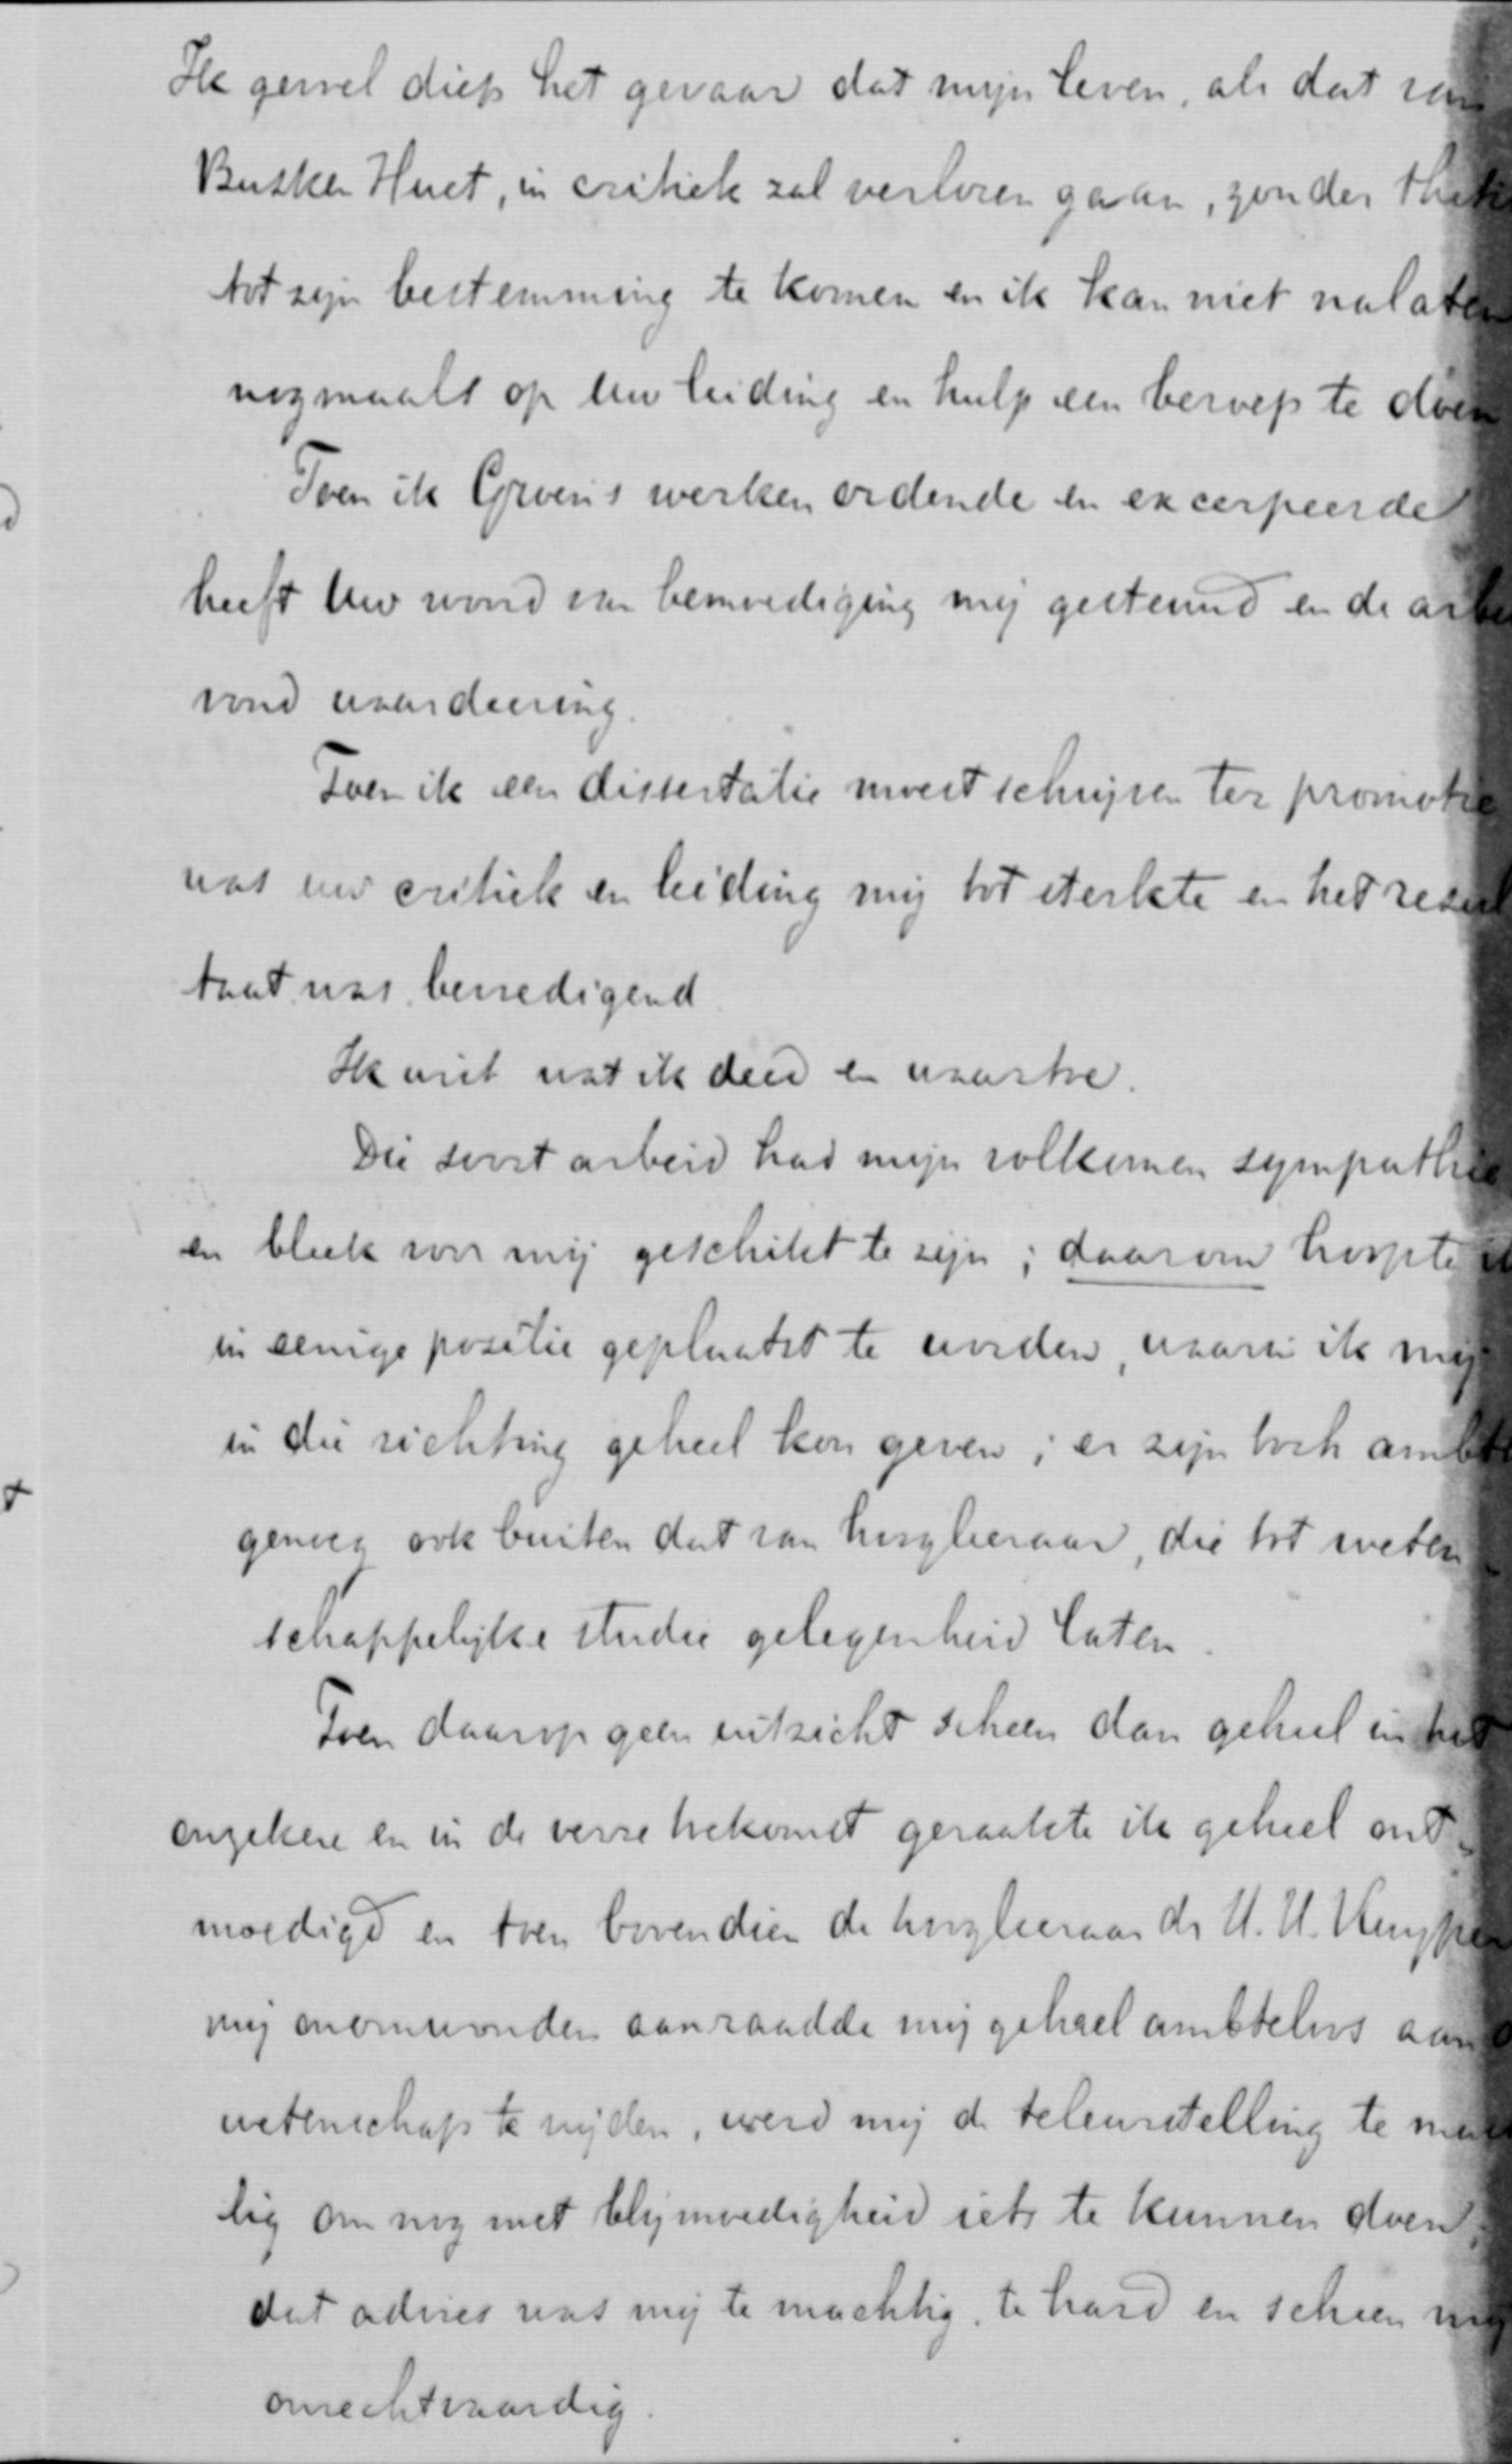 Ik gevoel diep het gevaar dat mijn leven, als dat van
Busken Huet, in critiek zal verloren gaan, zonder
tot zijn bestemming te komen en ik kan niet nalaten
nogmaals op Uw leiding en hulp een beroep te doen
Toen ik Groen's werken ordende en excerpeerde
heeft Uw woord van bemoediging mij gesteund en de arbei
vond waardeering.
Toen ik een dissertatie moest schrijven ter promotie
was uw critiek en leiding mij tot sterkte en het resul
taat was bevredigend
Ik wist wat ik deed en waartoe.
Die soort arbeid had mijn volkomen sympathie
en bleek voor mij geschikt te zijn; daarom hoopte ik
in eenige positie geplaatst te worden, waarin ik mij
in die richting geheel kon geven; er zijn toch ambte
genoeg ook buiten dat van hoogleeraar, die tot weten-
schappelijke studie gelegenheid laten.
Toen daarop geen uitzicht scheen dan geheel in het
onzekere en in de verre toekomst geraakte ik geheel ont-
moedigd en toen bovendien de hoogleeraar dr H. H. Kuyper
mij onomwonden aanraadde mij geheel ambteloos aan d
wetenschap te wijden, werd mij de teleurstelling te mach
tig om nog met blijmoedigheid iets te kunnen doen;
dat advies was mij te machtig, te hard en scheen mij
onrechtvaardig.